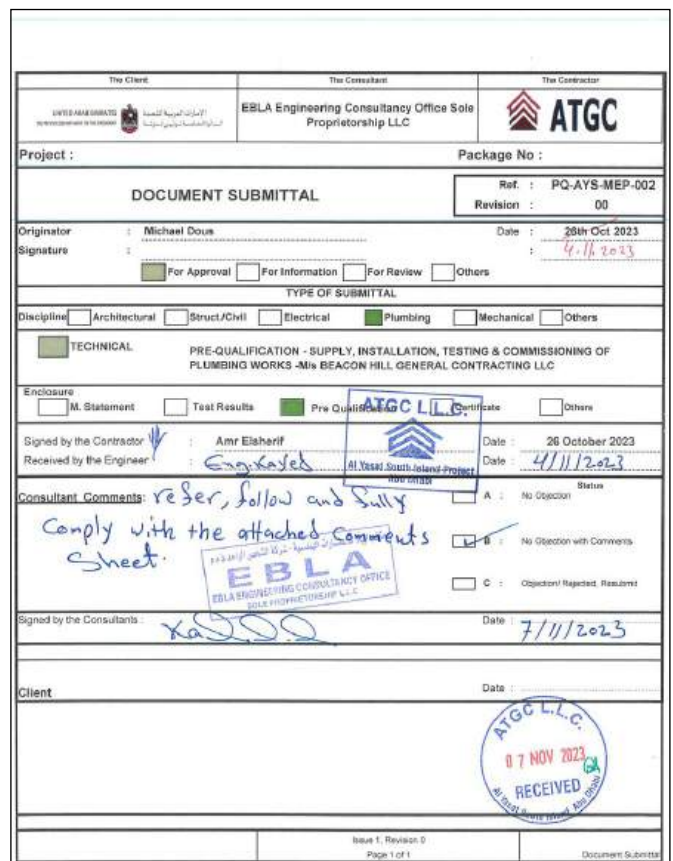 The Client The Consultant The Contractor
UNITED ARAB EMIRATES الإمارات العربية المتحدة
EBLA Engineering Consultancy Office Sole Proprietorship LLC
ATGC
Project : Package No :
DOCUMENT SUBMITTAL
Ref. : PQ-AYS-MEP-002
Revision : 00
Originator : Michael Dous Date : 26th Oct 2023
Signature : : 4.11.2023
For Approval For Information For Review Others
TYPE OF SUBMITTAL
Discipline Architectural Struct./Civil Electrical Plumbing Mechanical Others
TECHNICAL
PRE-QUALIFICATION - SUPPLY, INSTALLATION, TESTING & COMMISSIONING OF
PLUMBING WORKS -M/s BEACON HILL GENERAL CONTRACTING LLC
Enclosure
M. Statement Test Results Pre Qualification Certificate Others
ATGC L.L.C.
Al Yasat South Island Project
Abu Dhabi
Signed by the Contractor : Amr Elsherif Date : 26 October 2023
Received by the Engineer : Eng. Kayed Date : 4/11/2023
Consultant Comments: refer, follow and fully
Comply with the attached Comments
Sheet.
Status
A : No Objection
B : No Objection with Comments
C : Objection/ Rejected, Resubmit
EBLA
EBLA ENGINEERING CONSULTANCY OFFICE
SOLE PROPRIETORSHIP L.L.C
Signed by the Consultants : Date : 7/11/2023
Client Date :
ATGC L.L.C.
07 NOV 2023
RECEIVED
Al Yasat South Island, Abu Dhabi
Issue 1, Revision 0
Page 1 of 1 Document Submittal